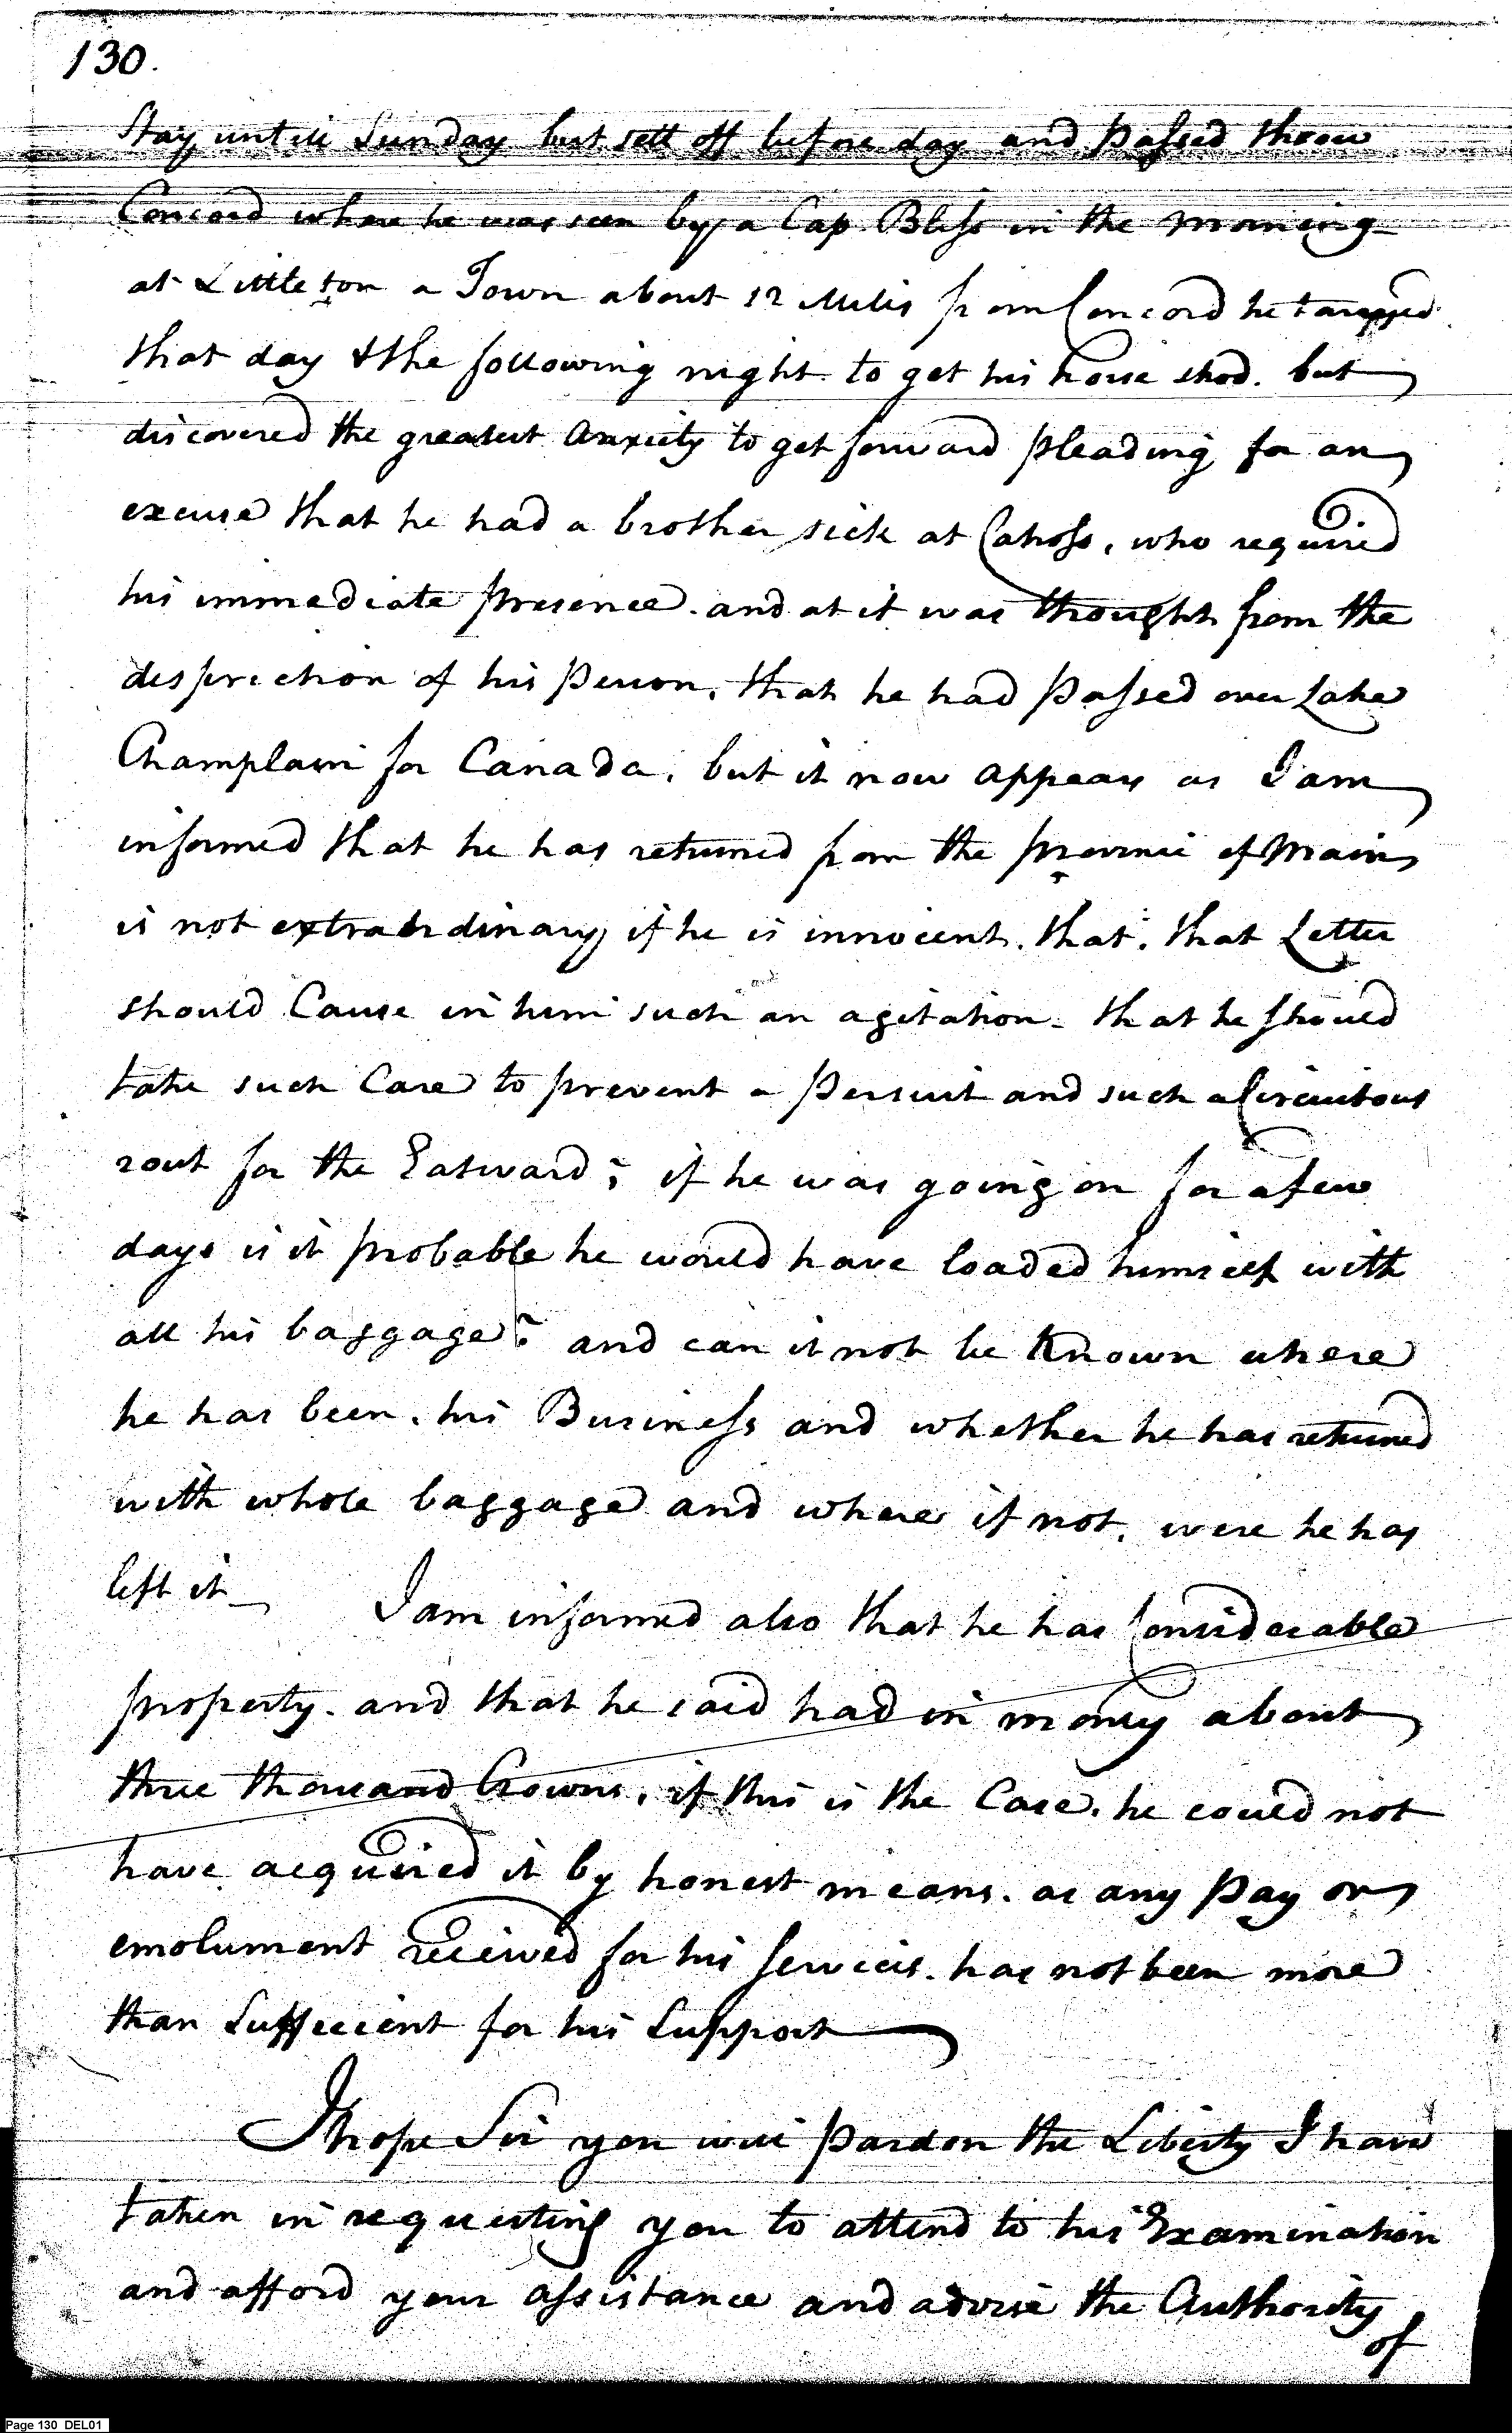 130.
Stay untill Sunday but sett off before day and Passed throu
Concord where he was seen by a Cap Bliss in the morning
at Littleton a Town about 12 Miles from Concord he
that day & the following night to get his horse shod. but
discovered the greatest anxiety to get forward pleading for an
excuse that he had a brother sick at Cahoss, who required
his immediate presence. and at it was thought from the
despriction of his Person, that he had Passed over Lake
Champlain for Canada, but it now appears as I am
informed that he has returned from the province of Main
is not extraordinary if he is innocent. that. that Letter
should Cause in him such an agitation - that he should
take such Care to prevent a Persuit and such a Circuitous
rout for the Eastward; if he was going on for a few
days is it probable he would have loaded himself with
all his baggage? and can it not be Known where
he has been. his Business and whether he has returned
with whole baggage and where if not, were he has
left it_ I am informed also that he has Considerable
property. and that he said had in money about
three thousand Crowns, if this is the Case, he could not
have acquired it by honest means. as any Pay or
emolument received for his Services. has not been more
than Suffecient for his Support
I hope Sir you will Pardon the Liberty I have
taken in requesting you to attend to his Examination
and afford your assistance and advise the Authority
of
Page 130 DEL01